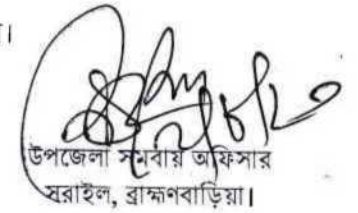 ।
উপজেলা সমবায় অফিসার
সরাইল, ব্রাহ্মণবাড়িয়া।